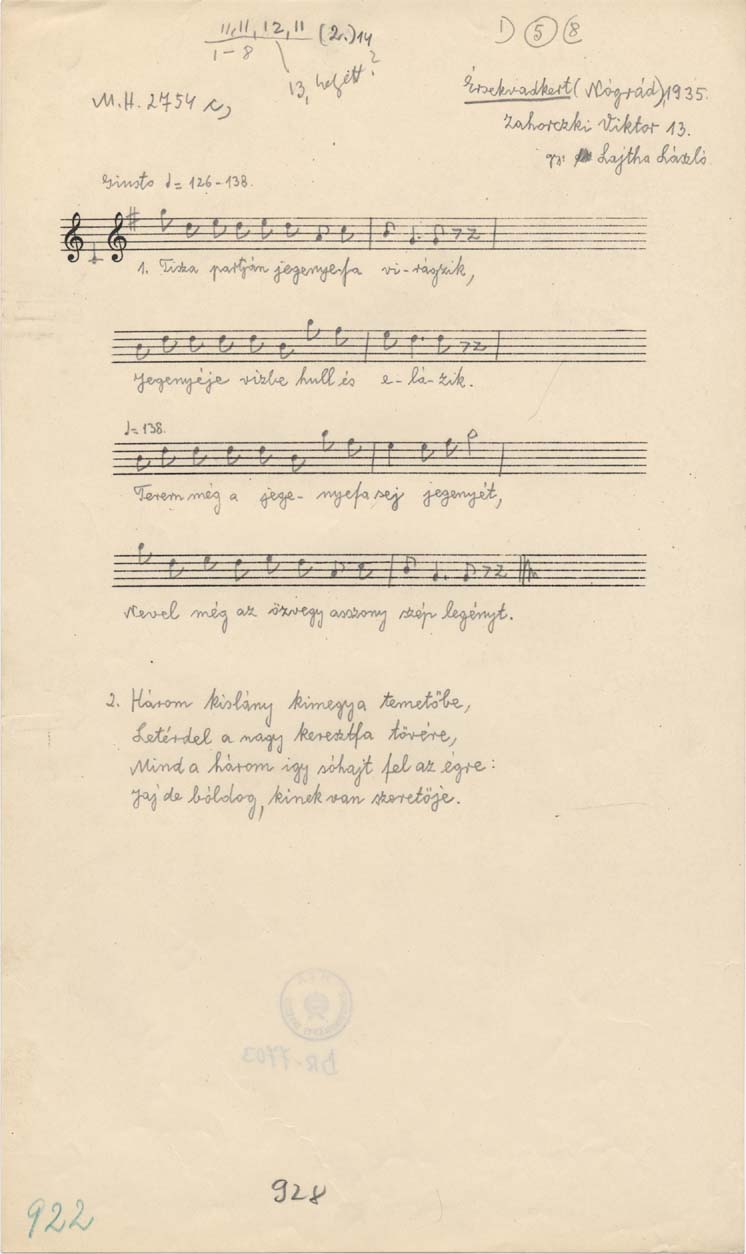 11, 11, 12, 11 (2.) 14
1-8
13, helyett?
1) 5 8
M.H. 2754 c,
Érsekvadkert (Nógrád), 1935.
Zahorczki Viktor 13.
gy: Lajtha László
Giusto = 126-138.
1. Tisza partján jegenyefa vi-rágzik,
Jegenyéje vizbe hull és e-lá-zik.
= 138.
Terem még a jege-nyefa sej jegenyét,
Nevel még az özvegy asszony szép legényt.
2. Három kislány kimegya temetőbe,
Letérdel a nagy keresztfa tövére,
Mind a három igy sóhajt fel az égre:
Jaj de bóldog, kinek van szeretője.
BR-7703
928
922